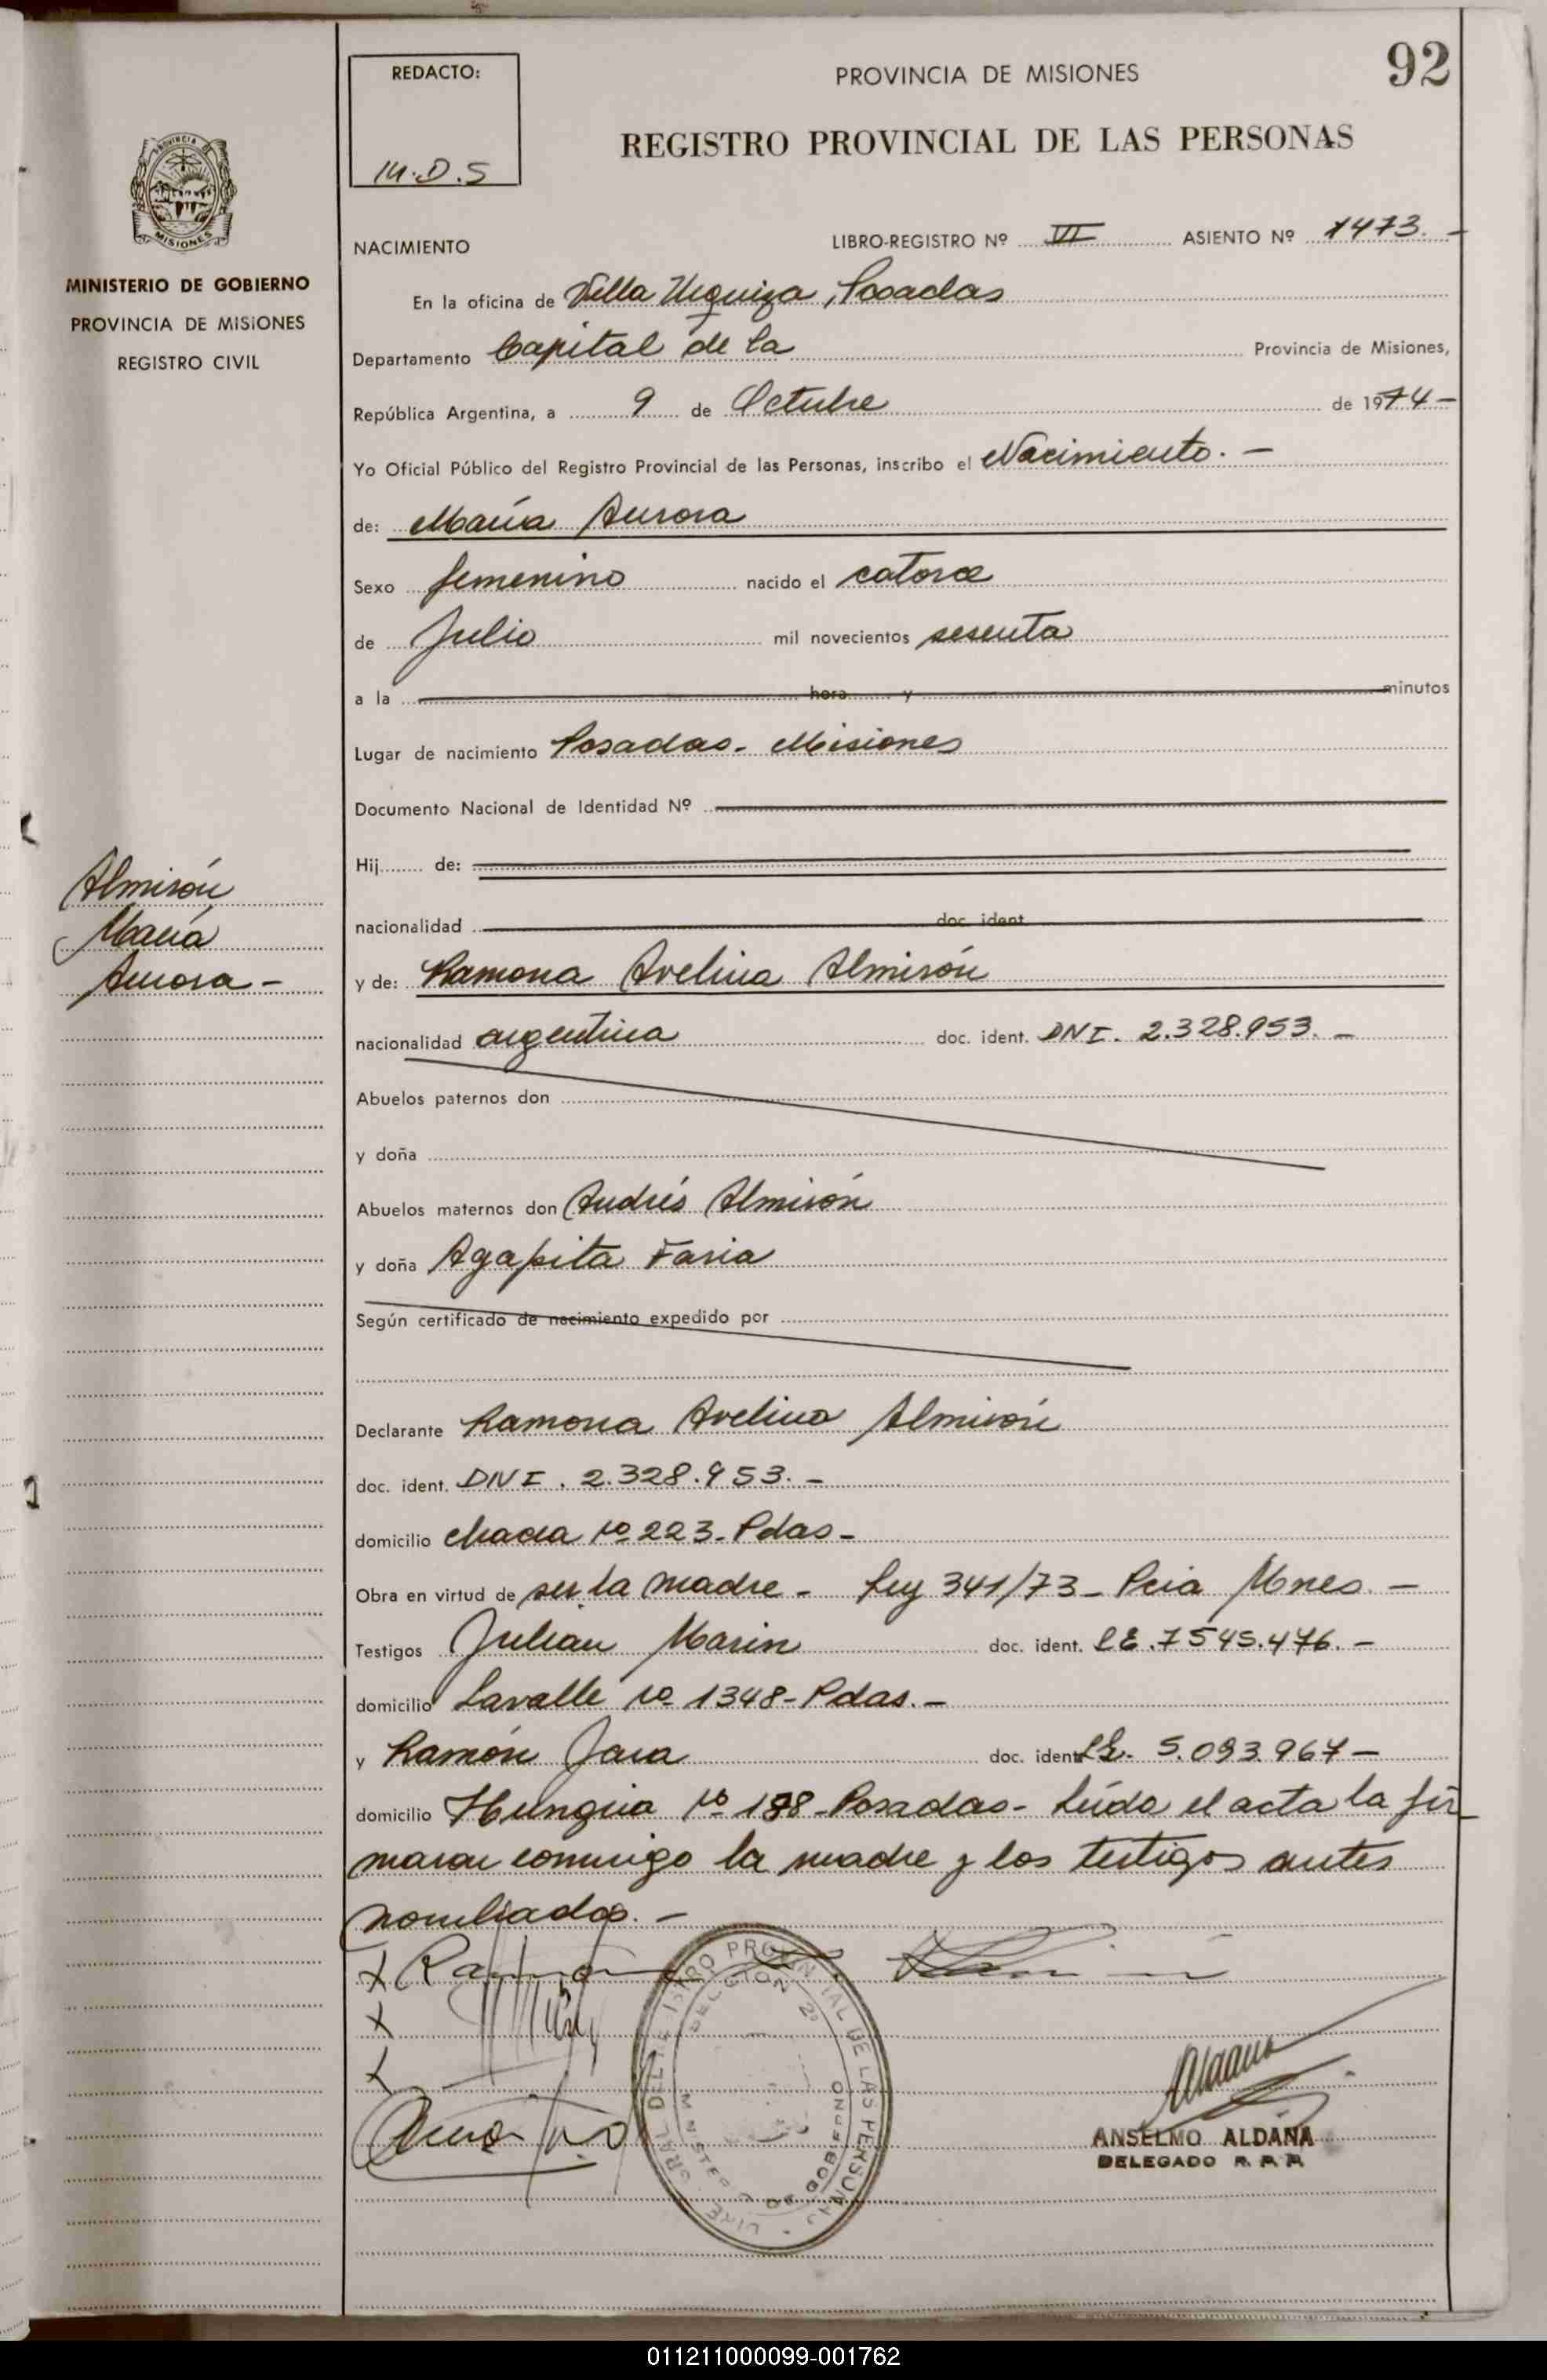 92
REDACTO:
M.D.S
PROVINCIA DE MISIONES
REGISTRO PROVINCIAL DE LAS PERSONAS
PROVINCIA DE
MISIONES
MINISTERIO DE GOBIERNO
PROVINCIA DE MISIONES
REGISTRO CIVIL
NACIMIENTO LIBRO-REGISTRO Nº VI ASIENTO Nº 1473.-
En la oficina de Villa Urquiza, Posadas
Departamento Capital de la Provincia de Misiones,
República Argentina, a 9 de Octubre de 1974-
Yo Oficial Público del Registro Provincial de las Personas, inscribo el Nacimiento.-
de: María Aurora
Sexo femenino nacido el catorce
de Julio mil novecientos sesenta
a la hora y minutos
Lugar de nacimiento Posadas- Misiones
Documento Nacional de Identidad Nº
Hij........ de:
nacionalidad doc. ident.
Almirón
María
Aurora-
y de: Ramona Avelina Almirón
nacionalidad argentina doc. ident. DNI. 2.328.953.-
Abuelos paternos don
y doña
Abuelos maternos don Andrés Almirón
y doña Agapita Faria
Según certificado de nacimiento expedido por
Declarante Ramona Avelina Almirón
doc. ident. DNI. 2.328.953.-
domicilio Chacra Nº 223- Pdas-
Obra en virtud de ser la madre- Ley 341/73- Pcia Mnes.-
Testigos Julian Marin doc. ident. LE. 7545.476.-
domicilio Lavalle Nº 1348- Pdas.-
y Ramón Jara doc. ident. LE. 5.093.967-
domicilio Hungria Nº 188- Posadas- Leída el acta la fir
maron conmigo la madre y los testigos antes
nombrados.-
X
X
X
REGISTRO PROVINCIAL DE LAS PERSONAS
MINISTERIO DE GOBIERNO
Aldana
ANSELMO ALDANA
DELEGADO R. P. P.
011211000099-001762